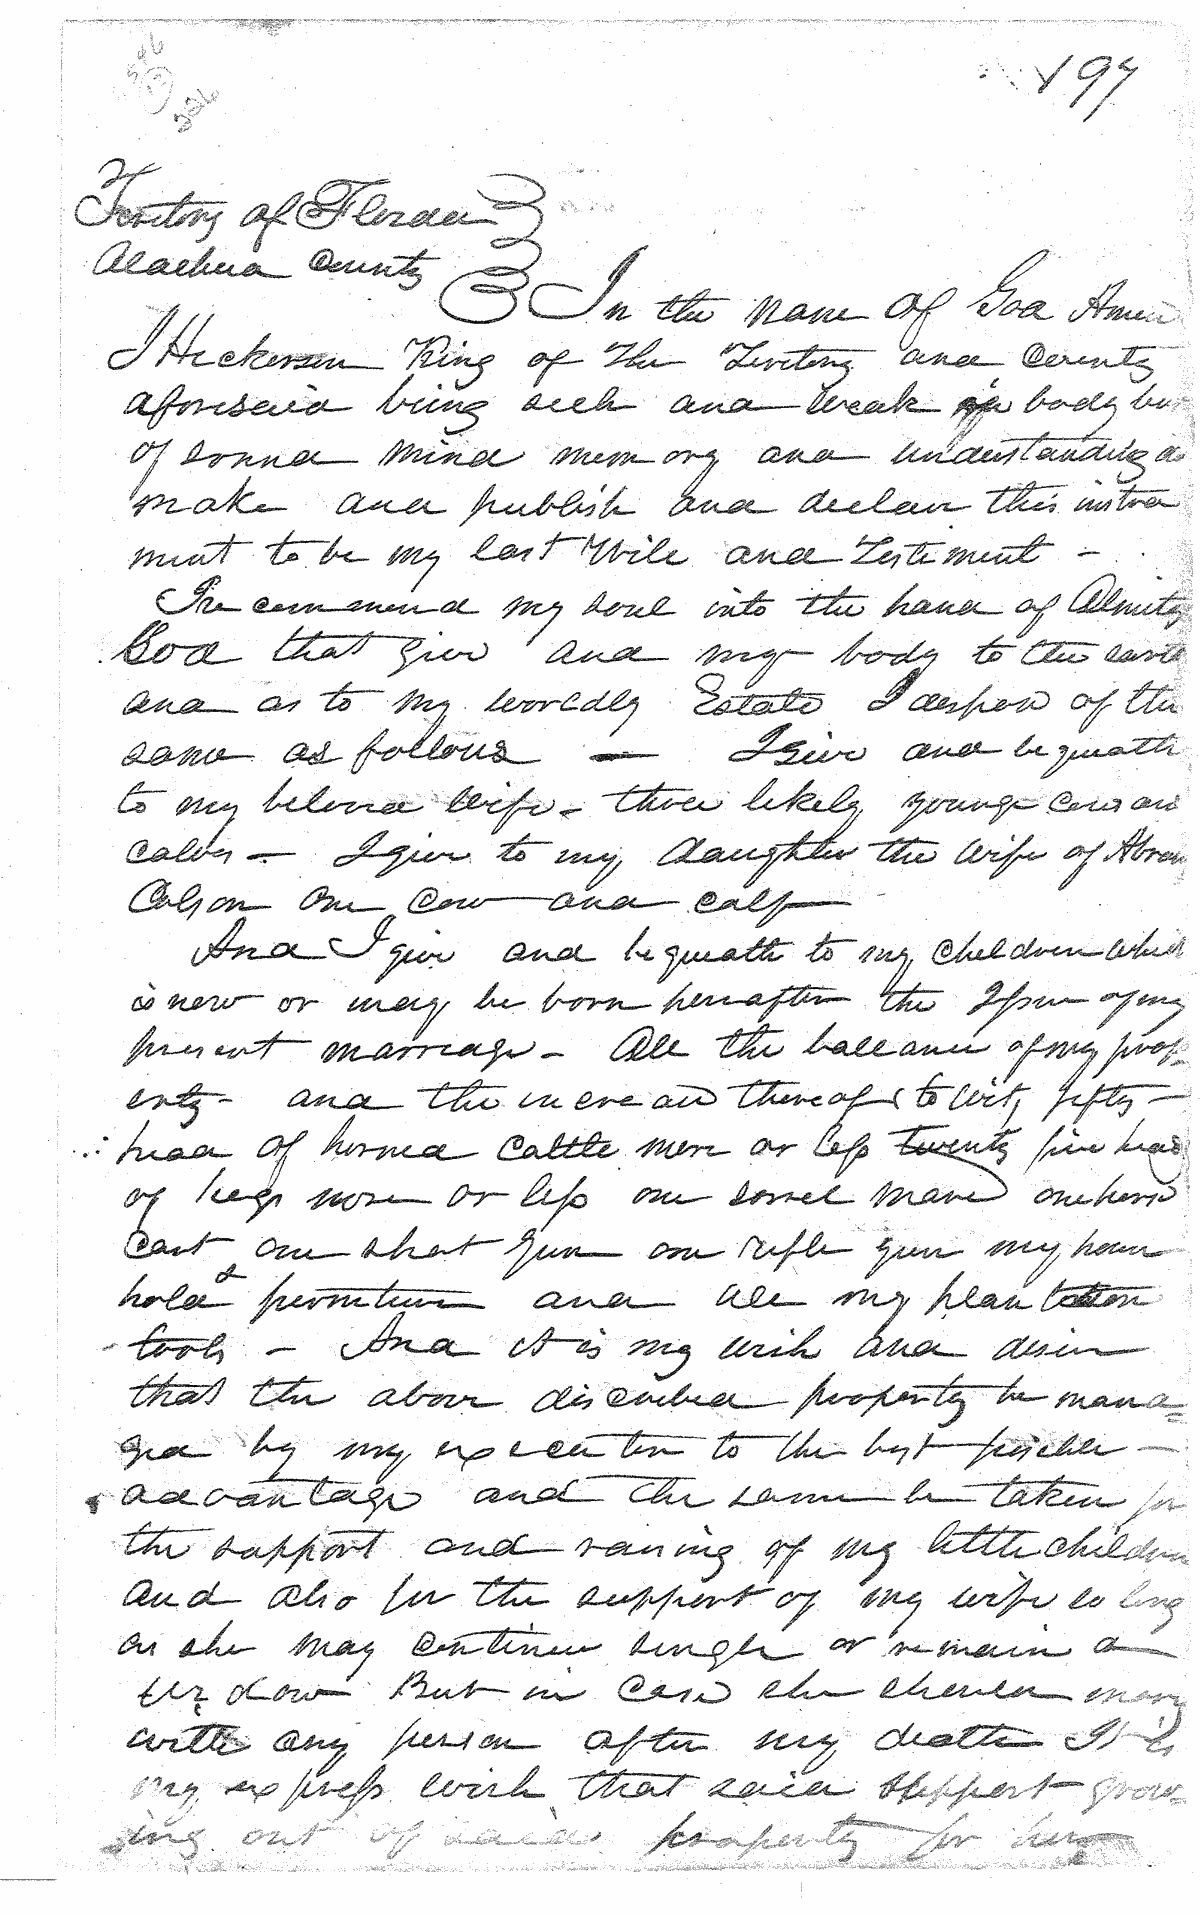 197
Teritory of Florida
Alachua County
In the Name of God Amen
I Hickerson King of The Teritory and County
aforesaid being sick and weak in body but
of sound mind memory and understanding do
make and publish and declare this instru
ment to be my last Will and Testiment -
I recommend my soul into the hand of Almity
God that give and my body to the earth
and as to my worldly Estate I dispose of the
same as follows — I Give and bequeath
to my beloved wife - three likely young cows and
calves - I give to my daughter the wife of Abram
Colson One Cow and calf
And I give and bequeath to my children which
is now or may be born hereafter the Issue of my
present marriage - All the ballance of my prop-
erty - and the increase thereof (to wit, fifty -
head of horned Cattle more or less twenty five head
of hogs more or less one sorrel mare one horse
Cart one shot gun one rifle gun my house
hold & furniture and all my plantation
tools - And it is my wish and desire
that the above discribed property be mana=
ged by my executor to the best posible -
advantage and the same be taken for
the support and raising of my little children
And also for the support of my wife so long
as she may continue single or remain a
widow But in case she should marry
with any person after my death It is
my express wish that said support grow=
ing out of said property for her